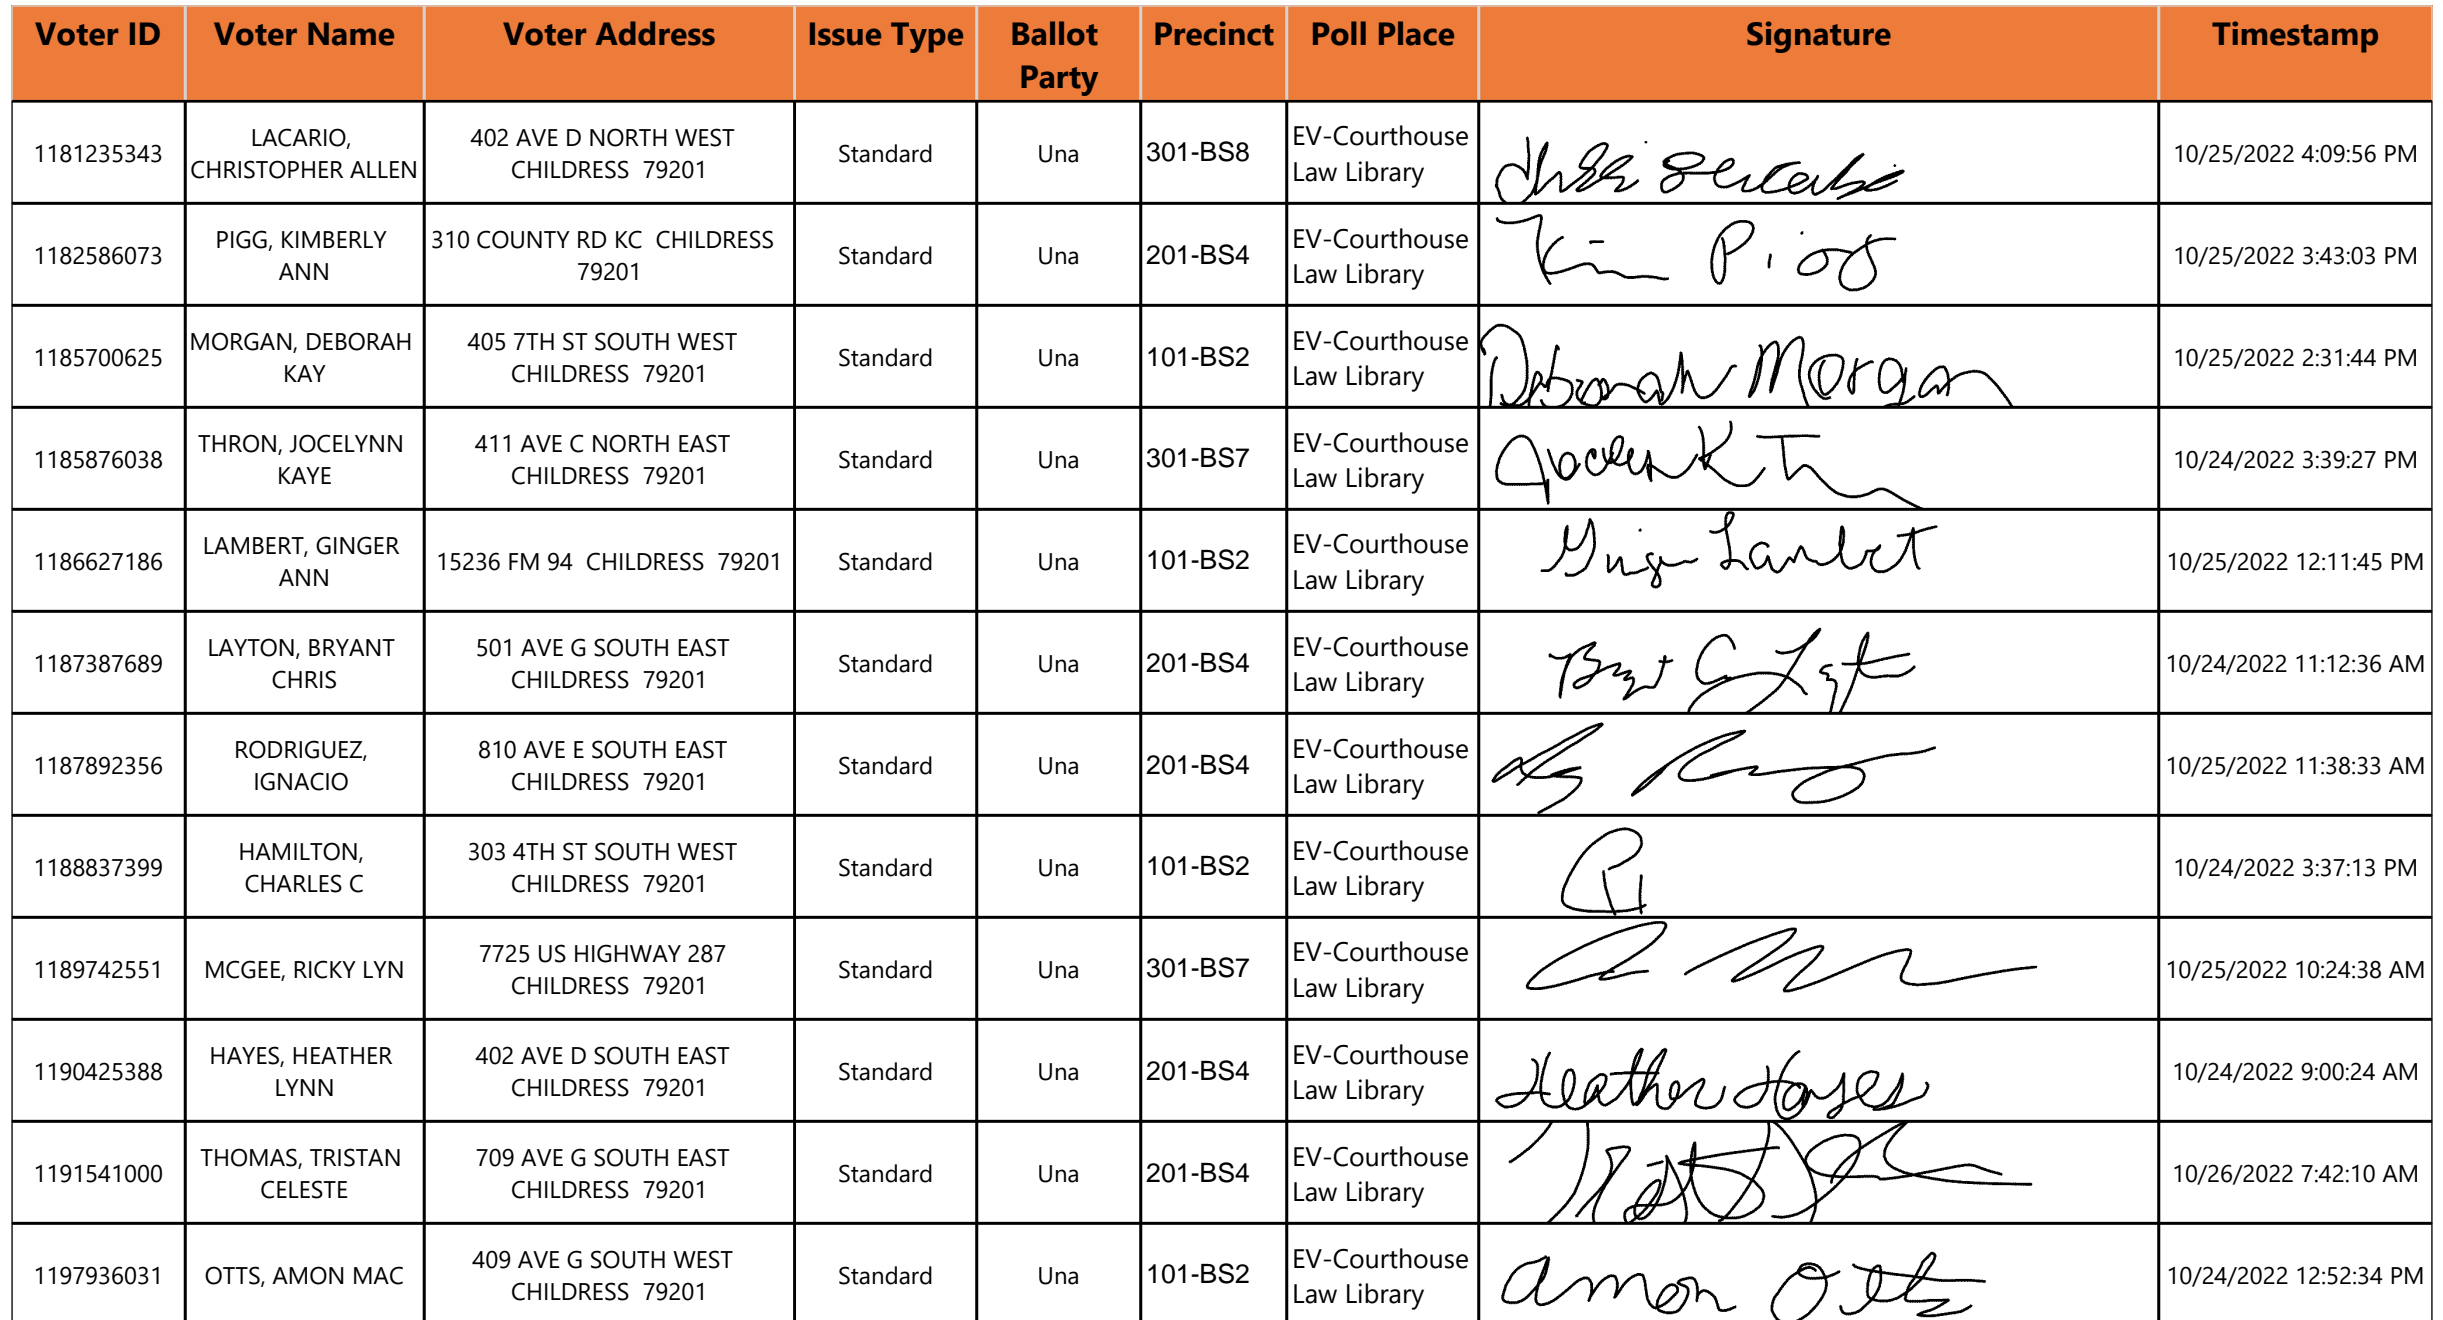 Voter ID Voter Name Voter Address Issue Type Ballot Party Precinct Poll Place Signature Timestamp
1181235343 LACARIO, CHRISTOPHER ALLEN 402 AVE D NORTH WEST CHILDRESS 79201 Standard Una 301-BS8 EV-Courthouse Law Library 10/25/2022 4:09:56 PM
1182586073 PIGG, KIMBERLY ANN 310 COUNTY RD KC CHILDRESS 79201 Standard Una 201-BS4 EV-Courthouse Law Library Kim Pigg 10/25/2022 3:43:03 PM
1185700625 MORGAN, DEBORAH KAY 405 7TH ST SOUTH WEST CHILDRESS 79201 Standard Una 101-BS2 EV-Courthouse Law Library Deborah Morgan 10/25/2022 2:31:44 PM
1185876038 THRON, JOCELYNN KAYE 411 AVE C NORTH EAST CHILDRESS 79201 Standard Una 301-BS7 EV-Courthouse Law Library 10/24/2022 3:39:27 PM
1186627186 LAMBERT, GINGER ANN 15236 FM 94 CHILDRESS 79201 Standard Una 101-BS2 EV-Courthouse Law Library Ginger Lambert 10/25/2022 12:11:45 PM
1187387689 LAYTON, BRYANT CHRIS 501 AVE G SOUTH EAST CHILDRESS 79201 Standard Una 201-BS4 EV-Courthouse Law Library 10/24/2022 11:12:36 AM
1187892356 RODRIGUEZ, IGNACIO 810 AVE E SOUTH EAST CHILDRESS 79201 Standard Una 201-BS4 EV-Courthouse Law Library 10/25/2022 11:38:33 AM
1188837399 HAMILTON, CHARLES C 303 4TH ST SOUTH WEST CHILDRESS 79201 Standard Una 101-BS2 EV-Courthouse Law Library 10/24/2022 3:37:13 PM
1189742551 MCGEE, RICKY LYN 7725 US HIGHWAY 287 CHILDRESS 79201 Standard Una 301-BS7 EV-Courthouse Law Library 10/25/2022 10:24:38 AM
1190425388 HAYES, HEATHER LYNN 402 AVE D SOUTH EAST CHILDRESS 79201 Standard Una 201-BS4 EV-Courthouse Law Library Heather Hayes 10/24/2022 9:00:24 AM
1191541000 THOMAS, TRISTAN CELESTE 709 AVE G SOUTH EAST CHILDRESS 79201 Standard Una 201-BS4 EV-Courthouse Law Library 10/26/2022 7:42:10 AM
1197936031 OTTS, AMON MAC 409 AVE G SOUTH WEST CHILDRESS 79201 Standard Una 101-BS2 EV-Courthouse Law Library Amon Otts 10/24/2022 12:52:34 PM